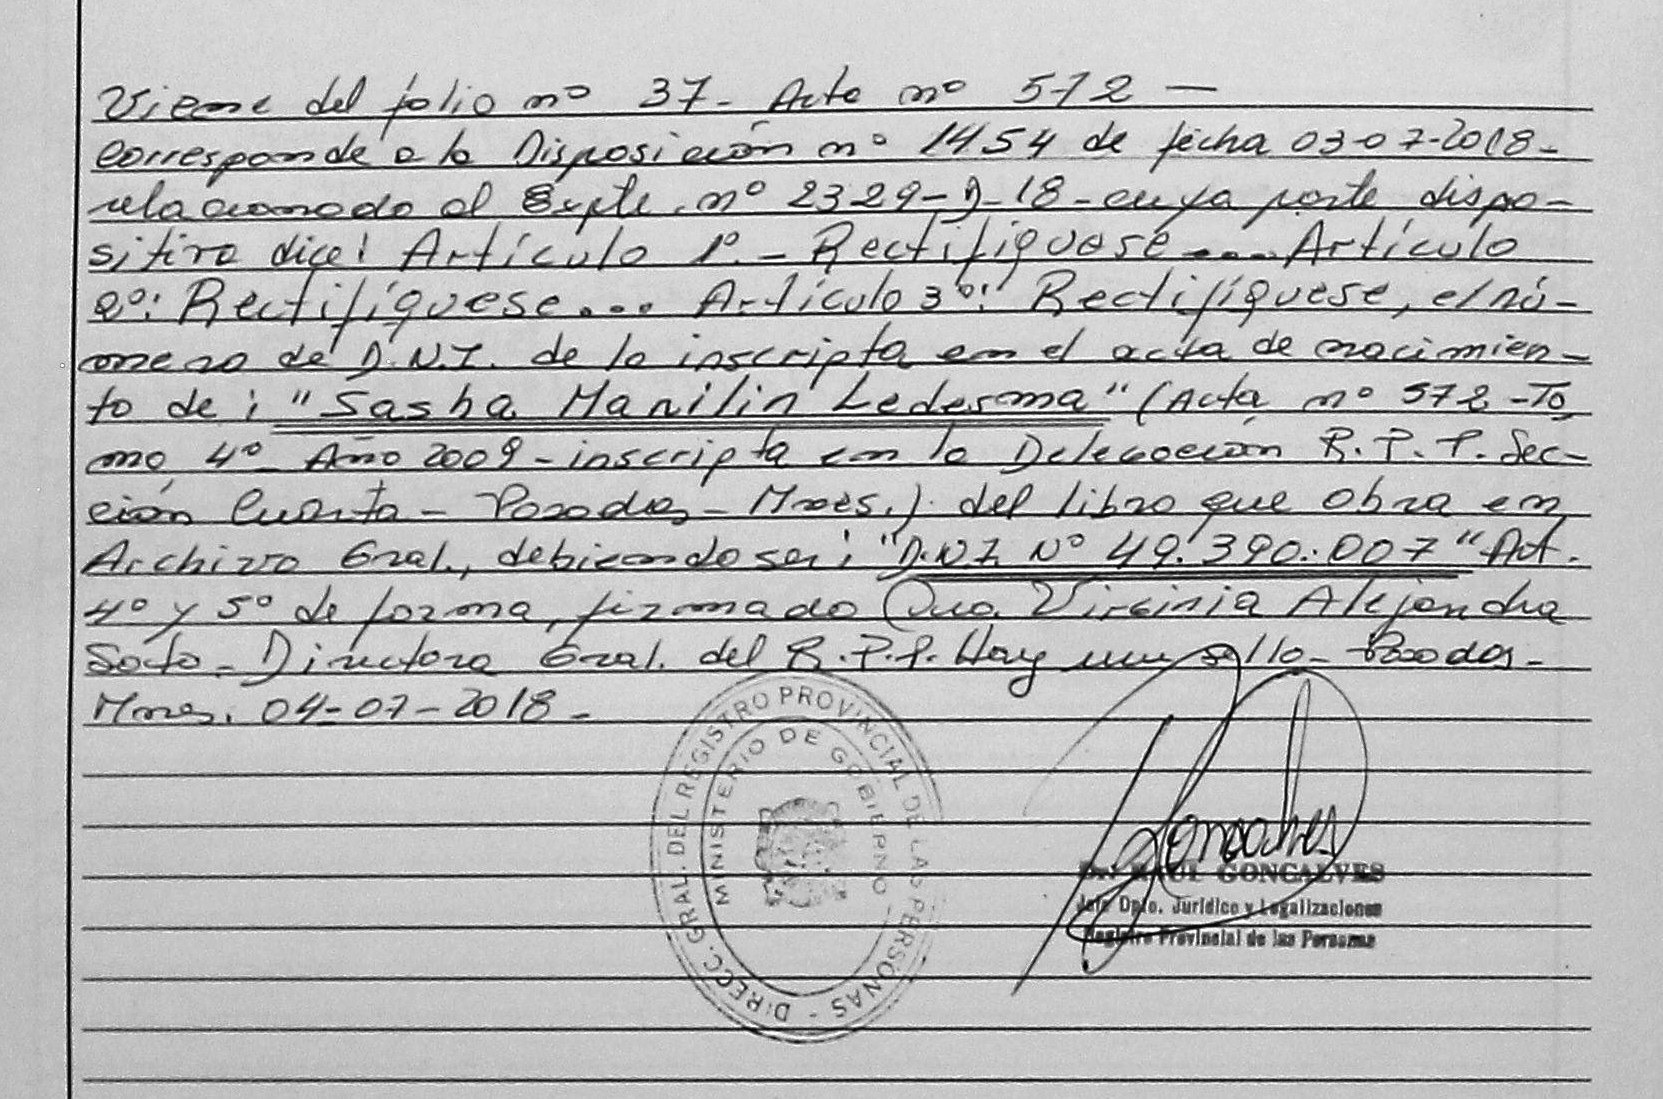 Viene del folio nº 37- Acta nº 572 —
Corresponde a la Disposición nº 1454 de fecha 03-07-2018-
relacionado al Expte. nº 2329-D-18- cuya parte dispo-
sitiva dice: Artículo 1º.- Rectifíquese.... Artículo
2º: Rectifíquese.... Artículo 3º: Rectifíquese, el nú-
mero de D.N.I. de la inscripta en el acta de nacimien-
to de: "Sasha Marilin Ledesma" (Acta nº 572-To
mo 4º Año 2009-inscripta en la Delegación R.P.P. Sec-
ción Cuarta- Posadas- Mnes.). del libro que obra en
Archivo Gral., debiendo ser: "D.N.I. Nº 49.390.007" Art.
4º y 5º de forma, firmado Dra. Virginia Alejandra
Soto- Directora Gral. del R.P.P. Hay un sello- Posadas-
Mnes. 04-07-2018-
DIRECC. GRAL. DEL REGISTRO PROVINCIAL DE LAS PERSONAS -
MINISTERIO DE GOBIERNO
Goncalves
Dr. RAUL GONCALVES
Jefe Dpto. Jurídico y Legalizaciones
Registro Provincial de las Personas